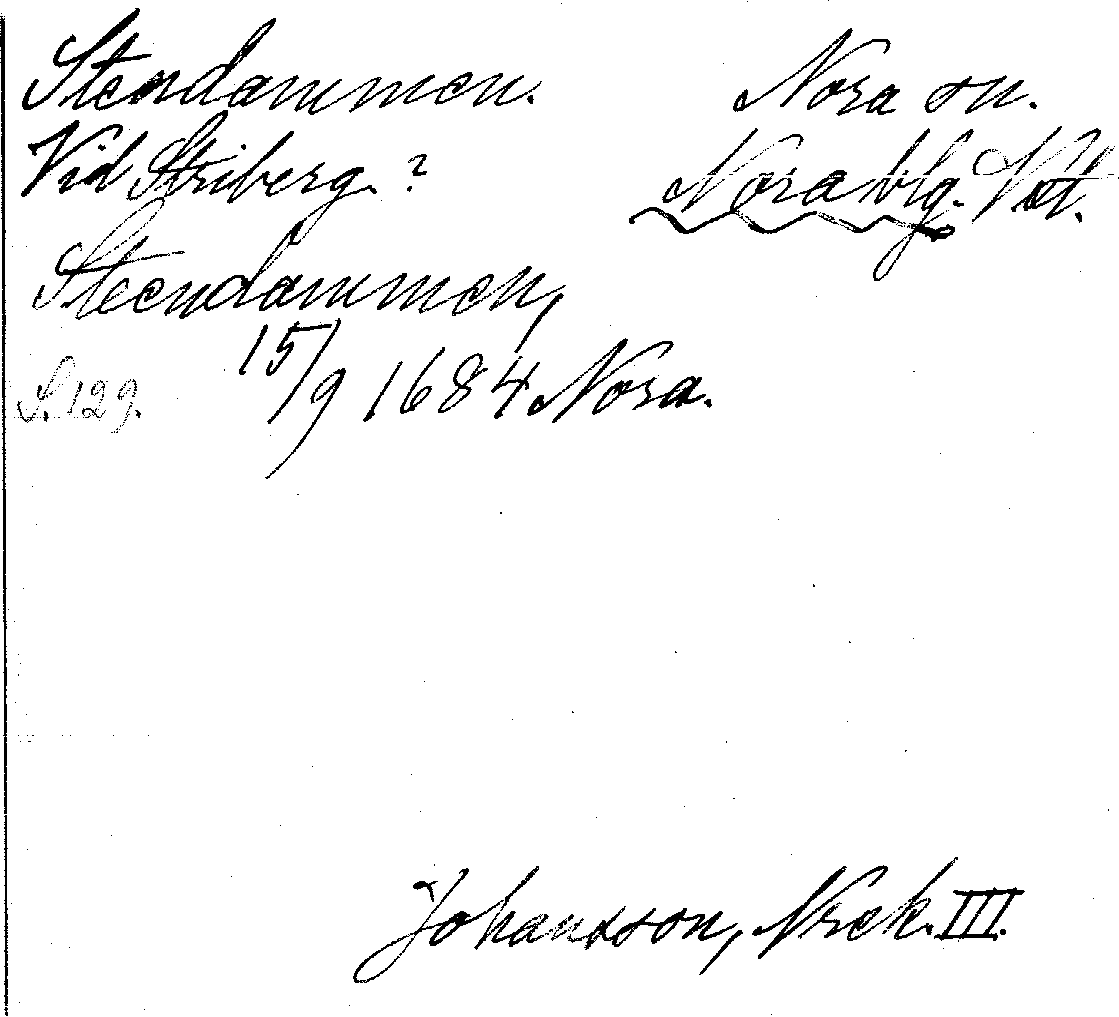 Stendammen. Nora sn.
Vid Striberg. ? Nora blg. Vstl.
Steendammen,
15/9 1684 Nora.
S. 129.
Johansson, Nrck. III.